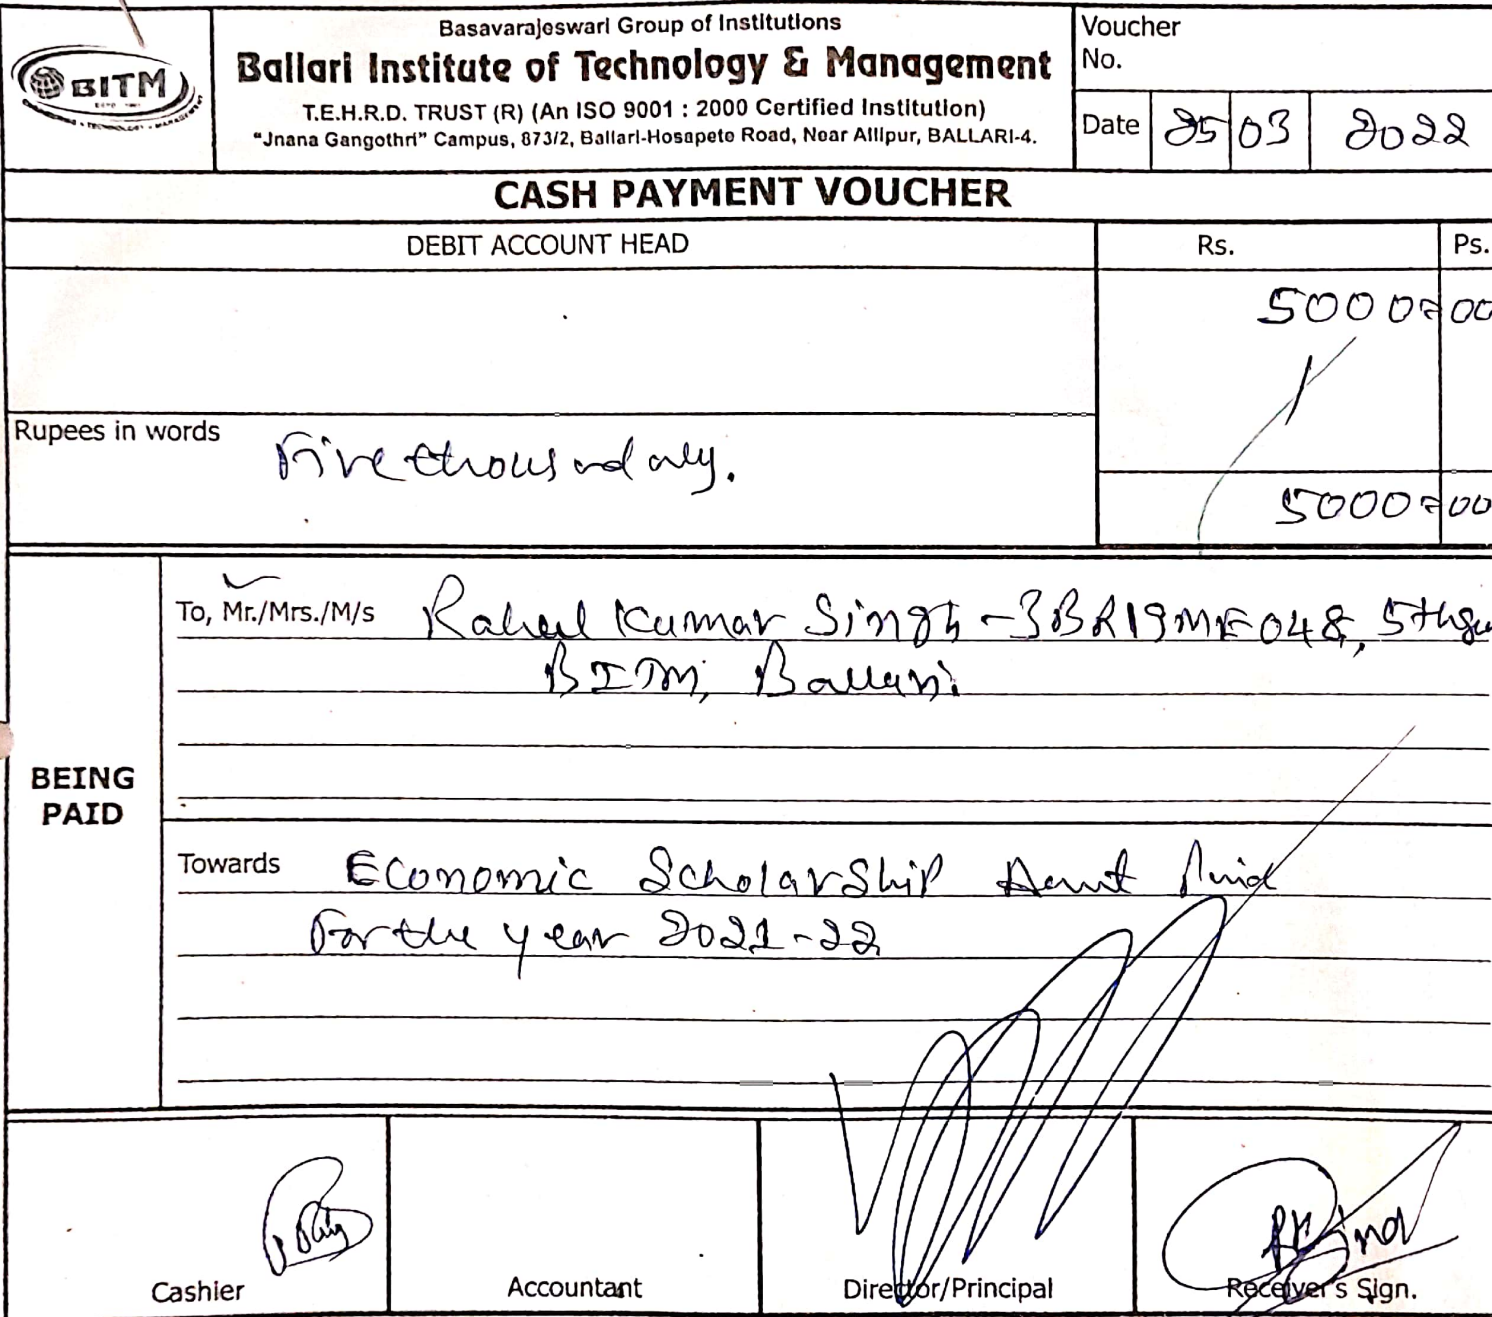 Basavarajeswari Group of Institutions
Ballari Institute of Technology & Management
T.E.H.R.D. TRUST (R) (An ISO 9001 : 2000 Certified Institution)
"Jnana Gangothri" Campus, 873/2, Ballari-Hosapete Road, Near Allipur, BALLARI-4.
BITM
Voucher
No.
Date 25 03 2022
CASH PAYMENT VOUCHER
DEBIT ACCOUNT HEAD Rs. Ps.
5000=00
Rupees in words Five thousand only.
5000=00
BEING
PAID
To, Mr./Mrs./M/s Rahul Kumar Singh - 3BR19ME048, 5th
BITM, Ballari
Towards Economic Scholarship Amt Paid
For the year 2021-22
Cashier Accountant Director/Principal Receiver's Sign.